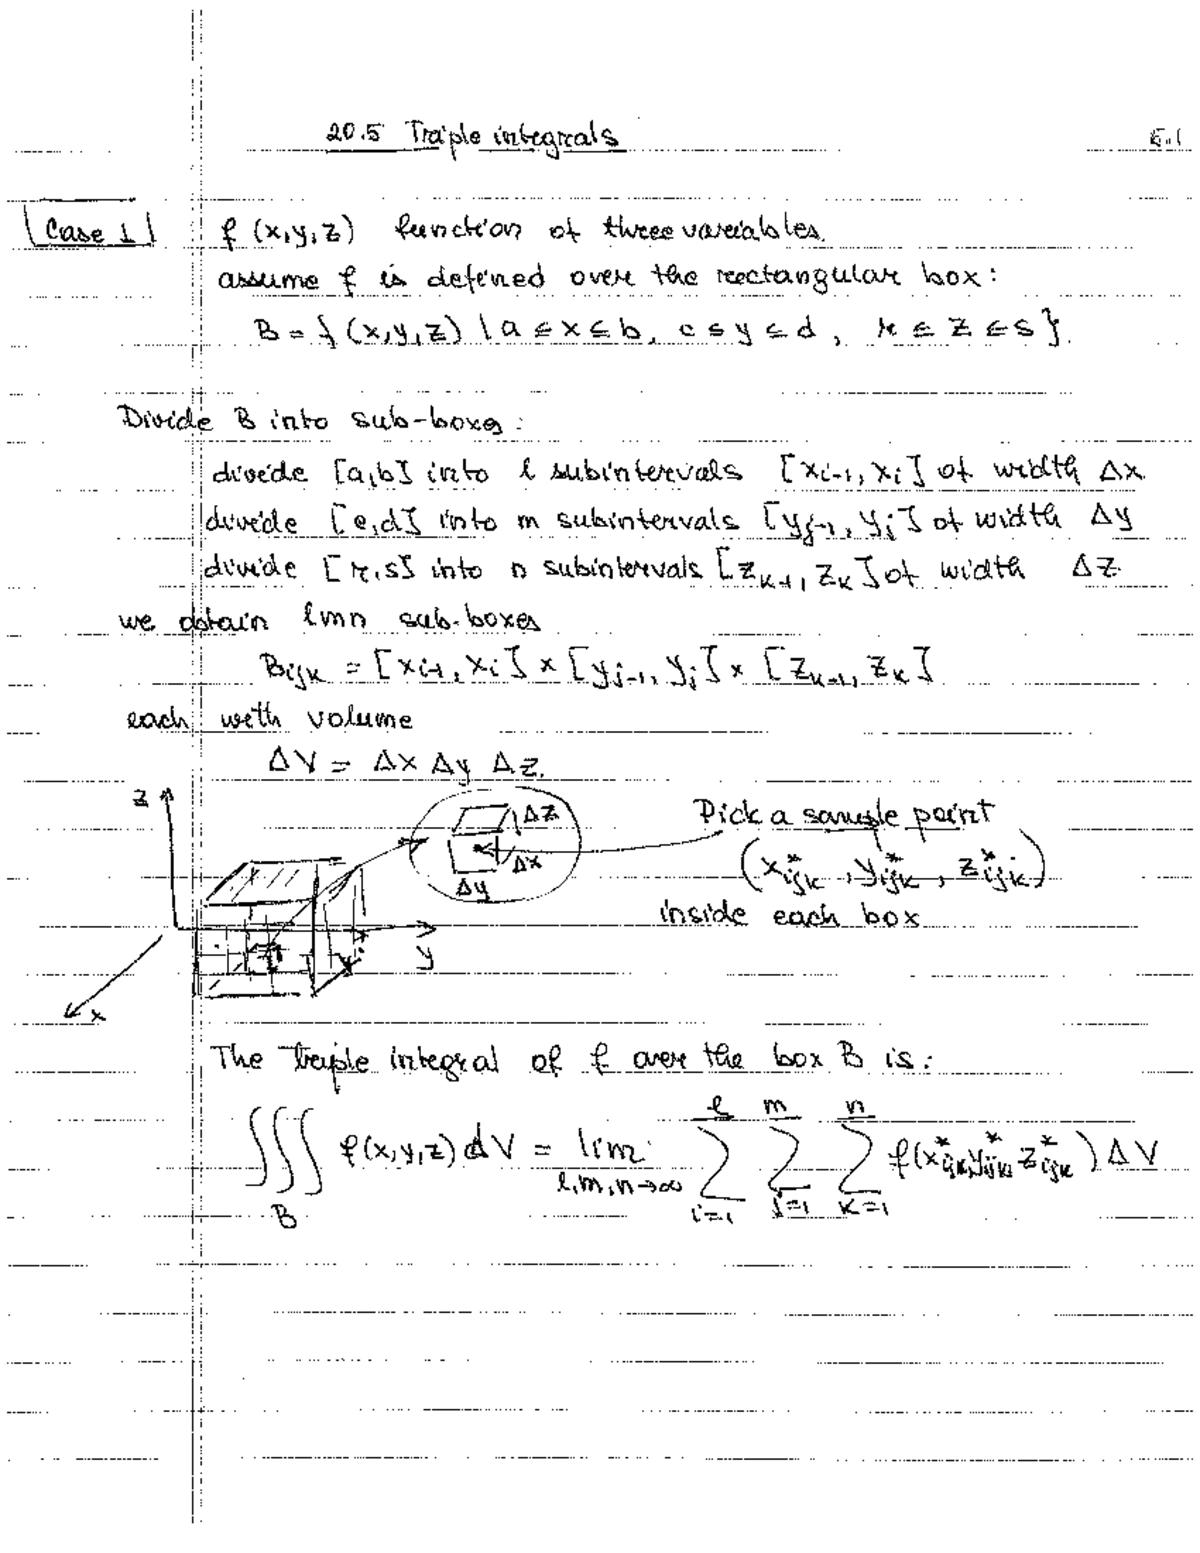 20.5 Triple integrals
Case 1
f (x,y,z) function of three variables.
assume f is defined over the rectangular box:
B = { (x,y,z) | a ≤ x ≤ b, c ≤ y ≤ d, r ≤ z ≤ s }
Divide B into sub-boxes:
divide [a,b] into l subintervals [xᵢ₋₁, xᵢ] of width Δx
divide [c,d] into m subintervals [yⱼ₋₁, yⱼ] of width Δy
divide [r,s] into n subintervals [zₖ₋₁, zₖ] of width Δz
we obtain lmn sub-boxes
Bᵢⱼₖ = [xᵢ₋₁, xᵢ] × [yⱼ₋₁, yⱼ] × [zₖ₋₁, zₖ]
each with volume
ΔV = Δx Δy Δz.
z
Δz
Δx
Δy
y
x
Pick a sample point
(x*ᵢⱼₖ, y*ᵢⱼₖ, z*ᵢⱼₖ)
inside each box
The triple integral of f over the box B is:
∭_B f(x,y,z) dV = lim_{l,m,n→∞} ∑_{i=1}^{l} ∑_{j=1}^{m} ∑_{k=1}^{n} f(x*ᵢⱼₖ, y*ᵢⱼₖ, z*ᵢⱼₖ) ΔV